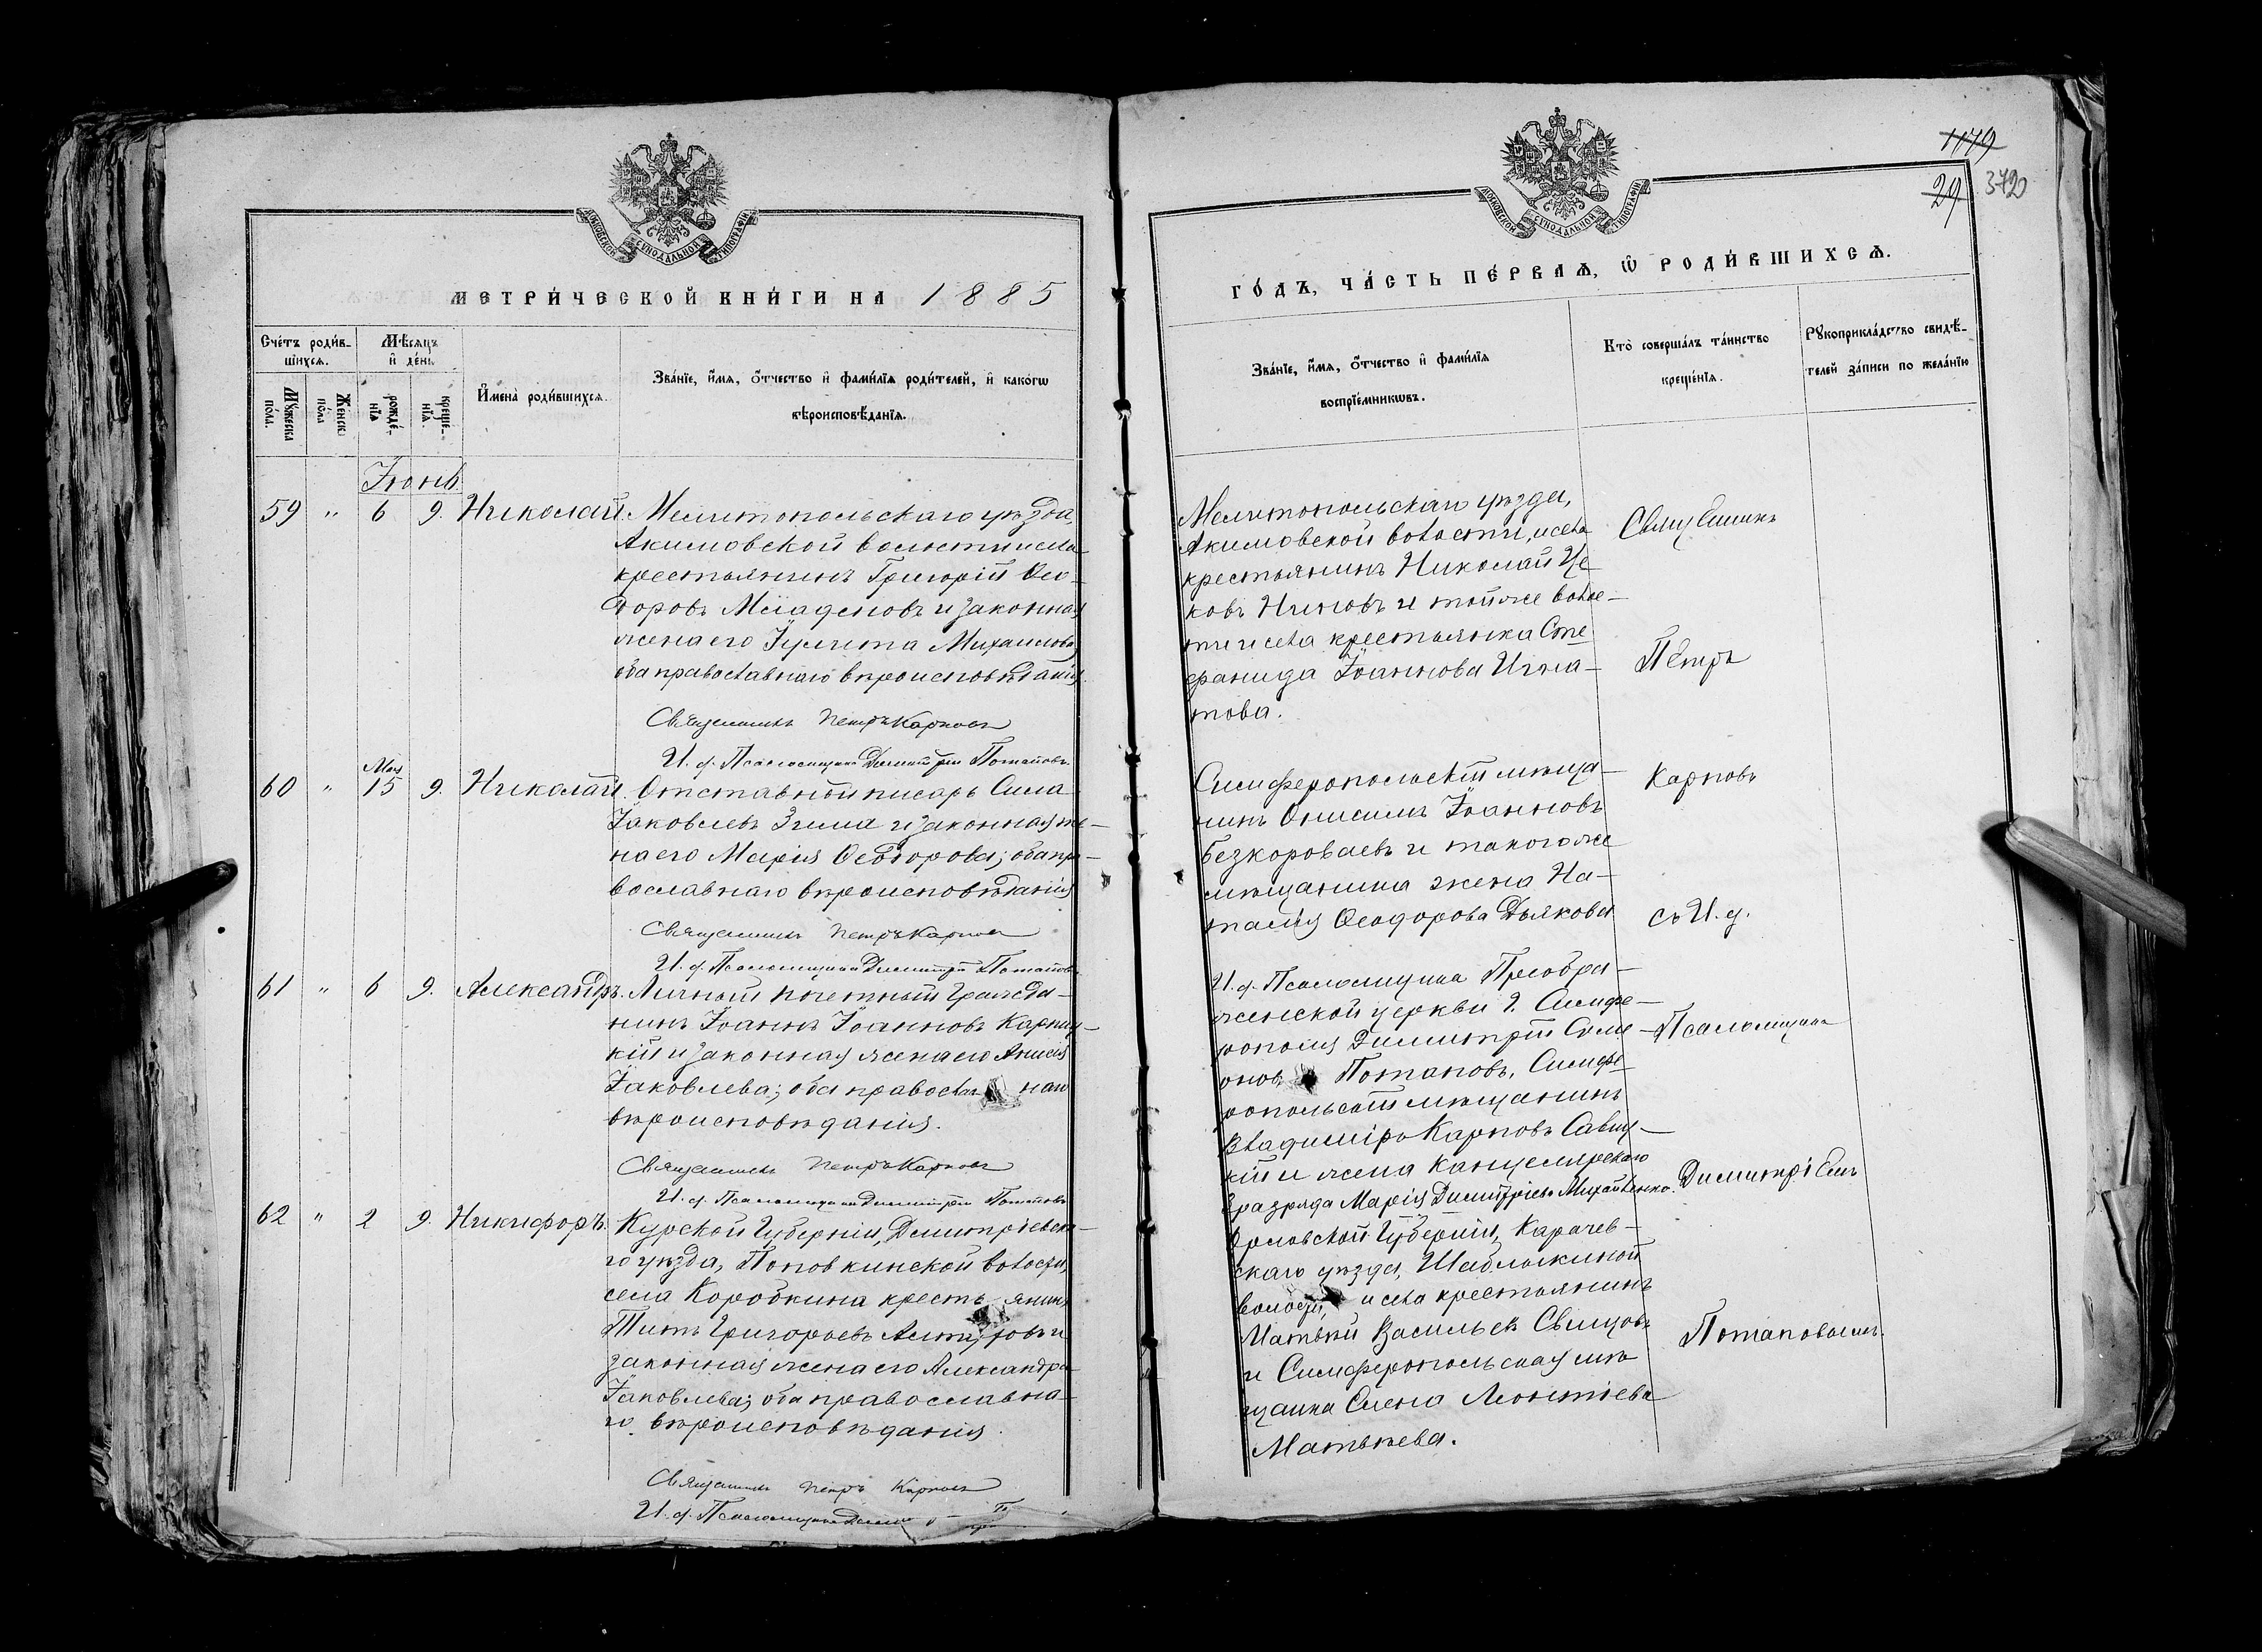 МОСКОВСКОЙ СѴНОДАЛЬНОЙ ТИПОГРАФІИ
МЕТРИ́ЧЕСКОЙ КНИ́ГИ НА 1885
Сче́тъ роди́в-
шихся.
Мѣ́сяцъ
и҆ де́нь.
И҆мена̀ роди́вшихся.
Зва́нїе, и҆́мя, ѻ҆́тчество и҆ фами́лїя роди́телей, и҆ како́гѡ
вѣроисповѣ́данїя.
Мꙋ́жеска
по́ла.
Же́нск.
по́ла
рожде́-
нїя
креще́-
нїя.
Іюнь.
59 " 6 9. Николай. Мелитопольскаго уѣзда,
Акимовской волости и села
крестьянинъ Григорій Ѳео-
доровъ Младеновъ и законная
жена его Іулита Михаилова,
оба православнаго вѣроисповѣданія.
Священникъ Петръ Карповъ
И. д. Псаломщика Димитрій Потаповъ.
60 " Мая 15 9. Николай. Отставной писарь Сила
Іаковлевъ Зима и законная же-
на его Марія Ѳеодорова; оба пра-
вославнаго вѣроисповѣданія
Священникъ Петръ Карповъ
И. д. Псаломщика Димитрій Потаповъ
61 " 6 9. Александръ. Личный почетный гражда-
нинъ Іоаннъ Іоанновъ
кій и законная жена его Анисія
Іаковлева; оба православ наго
вѣроисповѣданія.
Священникъ Петръ Карповъ
И. д. Псаломщика Димитрій Потаповъ
62 " 2 9. Никифоръ. Курской Губерніи, Димитріевска-
го уѣзда, Поповкинской волости,
села Коробкина кресть янинъ
Титъ Григорьевъ и
законная жена его Александра
Іаковлева; оба православна-
го вѣроисповѣданія.
Священникъ Петръ Карповъ
И. д. Псаломщика
1179
29 3720
МОСКОВСКОЙ СѴНОДАЛЬНОЙ ТИПОГРАФІИ
ГО́ДЪ, ЧА́СТЬ ПЕ́РВАѦ, Ѡ҆ РОДИ́ВШИХСѦ.
Зва́нїе, и҆́мя, ѻ҆́тчество и҆ фами́лїя
воспрїе́мникѡвъ.
Кто̀ соверша́лъ та́инство
креще́нїя.
Рꙋкоприкла́дство свидѣ́-
телей за́писи по жела́нїю
Мелитопольскаго уѣзда,
Акимовской волости, и села
крестьянинъ Николай Це-
ковъ Ниновъ и той же волос-
ти и села крестьянка Сте-
фанида Іоаннова Игна-
това.
Священникъ
Петръ
Симферопольскій мѣща-
нинъ Онисимъ Іоанновъ
Безкороваевъ и такого же
мѣщанина жена На-
талія Ѳеодорова Дьякова
Карповъ
съ И. д.
И. д. Псаломщика Преобра-
женской церкви г. Симфе-
рополя Димитрій Симе-
оновъ Потаповъ, Симфе-
ропольскій мѣщанинъ
Владиміръ Карповъ Савиц-
кій и жена Канцелярскаго
3 разряда Марія Димитріева Михайленко.
Псаломщика
Димитріемъ
Орловской Губерніи, Карачев-
скаго уѣзда, Шаблыкиной
волости, и села крестьянинъ
Матвій Васильевъ Свинцовъ
и Симферопольская мѣ-
щанка Елена Леонтіева
Матвѣева.
Потаповымъ.